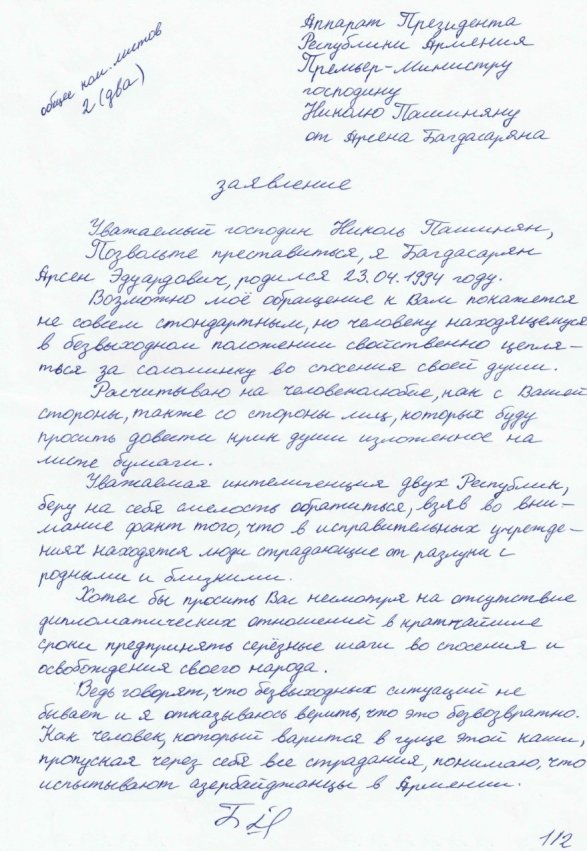 общее кол. листов
2 (два)
Аппарат Президента
Республики Армения
Премьер-Министру
господину
Николю Пашиняну
от Арсена Багдасаряна
заявление
Уважаемый господин Николь Пашинян,
Позвольте преставиться, я Багдасарян
Арсен Эдуардович, родился 23.04.1994 году.
Возможно моё обращение к Вам покажется
не совсем стондартным, но человеку находящемуся
в безвыходном положении свойственно цепля-
ться за соломинку во спосения своей души.
Расчитываю на человеколюбие, как с Вашей
стороны, также со стороны лиц, которых буду
просить довести крик души изложенное на
листе бумаги.
Уважаемая интелигенция двух Республик,
беру на себя смелость обратиться, взяв во вни-
мание факт того, что в исправительных учрежде-
ниях находятся люди страдающие от разлуки с
родными и близкими.
Хотел бы просить Вас несмотря на отсутствие
дипломатических отношений в кратчайшие
сроки предпринять серёзные шаги во спосения и
освобождения своего народа.
Ведь говорят, что безвыходных ситуаций не
бывает и я отказываюсь верить, что это безвозвратно.
Как человек, который варится в гуще этой каши,
пропуская через себя все страдания, понимаю, что
испытывают азербайджанцы в Армении.
1/2